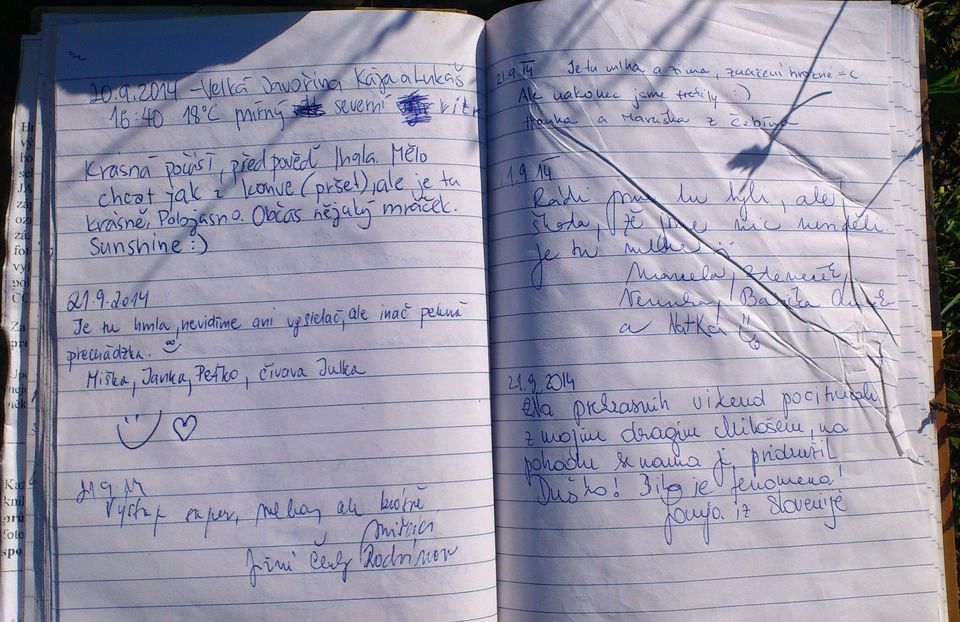 20.9.2014 - Velká Javořina Kája a Lukáš
16:40 18°C mírný severní vítr
Krásná počasí, předpověď lhala. Mělo
chcat jak z konve (pršet), ale je tu
krásně, Polojasno. Občas nějaký mráček.
Sunshine :)
21.9.2014
Je tu hmla, nevidíme ani vysielač, ale ináč pekná
prechádzka.
Miška, Janka, Peťko, čivava Julka
21.9.14
Výstup super,
Jiří
21.9.14 Je tu mlha a zima, značení hrozné =c
Ale nakonec jsme trefily :)
Hanka a Maruška z Čebína
21.9 14
Rádi jsme tu byli, ale
škoda, že jsme nic neviděli
Je tu mlha
Marcela, Zdeneček,
a Natka
21.9.2014
prekrasnih vikend
z mojim dragim Milošem, na
pohodu se nama je pridružil
Duško! Bilo je fenomena!
Janja iz Slovenije